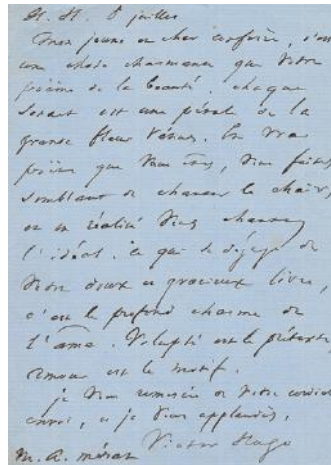 H. H. 8 juillet.
Mon jeune et cher confrère, c'est
une chose charmante que votre
poème de la beauté. chaque
sonnet est une pétale de la
grande fleur Vénus. En vrai
poète que vous êtes, vous faites
semblant de chanter la chair,
et en réalité vous chantez
l'idéal. ce qui se dégage de
votre doux et gracieux livre,
c'est le profond charme de
l'âme. Volupté est le prétexte,
amour est le motif.
je vous remercie de votre cordial
envoi, et je vous applaudis.
Victor Hugo
M. A. Mérat